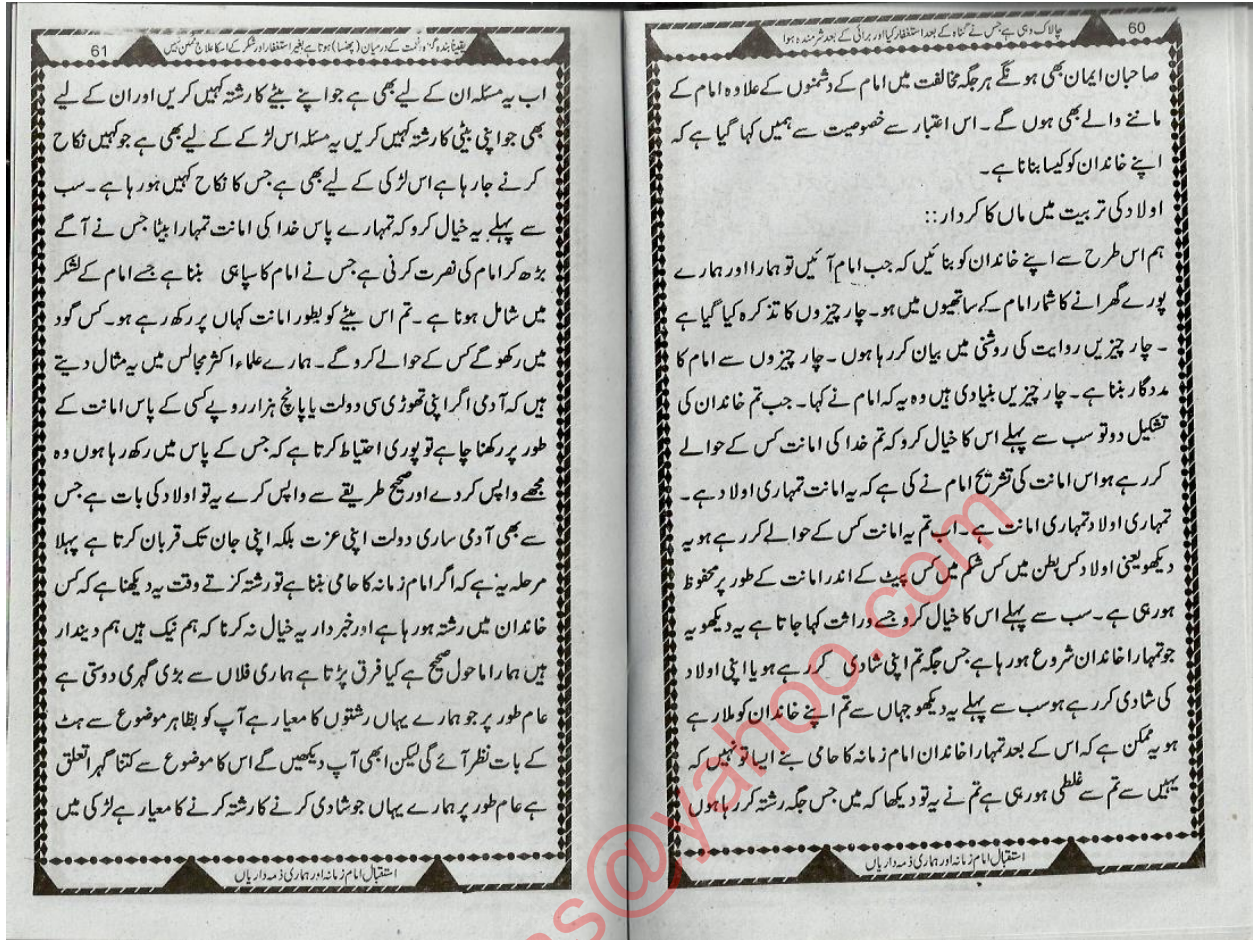 60
چالاک وہی ہے جس نے گناہ کے بعد استغفار کیا اور برائی کے بعد شرمندہ ہوا
صاحبان ایمان بھی ہونگے ہر جگہ مخالفت میں امام کے دشمنوں کے علاوہ امام کے
ماننے والے بھی ہوں گے۔ اس اعتبار سے خصوصیت سے ہمیں کہا گیا ہے کہ
اپنے خاندان کو کیسا بنانا ہے۔
اولاد کی تربیت میں ماں کا کردار::
ہم اس طرح سے اپنے خاندان کو بنائیں کہ جب امام آئیں تو ہمارا اور ہمارے
پورے گھرانے کا شمار امام کے ساتھیوں میں ہو۔ چار چیزوں کا تذکرہ کیا گیا ہے
۔ چار چیزیں روایت کی روشنی میں بیان کر رہا ہوں۔ چار چیزوں سے امام کا
مددگار بننا ہے۔ چار چیزیں بنیادی ہیں وہ یہ کہ امام نے کہا۔ جب تم خاندان کی
تشکیل دو تو سب سے پہلے اس کا خیال کرو کہ تم خدا کی امانت کس کے حوالے
کر رہے ہو اس امانت کی تشریح امام نے کی ہے کہ یہ امانت تمہاری اولاد ہے۔
تمہاری اولاد تمہاری امانت ہے۔ اب تم یہ امانت کس کے حوالے کر رہے ہو یہ
دیکھو یعنی اولاد کس بطن میں کس شکم میں کس پیٹ کے اندر امانت کے طور پر محفوظ
ہو رہی ہے۔ سب سے پہلے اس کا خیال کرو جسے وراثت کہا جاتا ہے یہ دیکھو یہ
جو تمہارا خاندان شروع ہو رہا ہے جس جگہ تم اپنی شادی کر رہے ہو یا اپنی اولاد
کی شادی کر رہے ہو سب سے پہلے یہ دیکھو جہاں سے تم اپنے خاندان کو ملا رہے
ہو یہ ممکن ہے کہ اس کے بعد تمہارا خاندان امام زمانہ کا حامی بنے ایسا تو نہیں کہ
یہیں سے تم سے غلطی ہو رہی ہے تم نے یہ تو دیکھا کہ میں جس جگہ رشتہ کر رہا ہوں
استقبال امام زمانہ اور ہماری ذمہ داریاں
61
یقیناً بندہ گناہ و نعمت کے درمیان (پھنسا) ہوتا ہے بغیر استغفار اور شکر کے اسکا علاج ممکن نہیں
اب یہ مسئلہ ان کے لیے بھی ہے جو اپنے بیٹے کا رشتہ کہیں کریں اور ان کے لیے
بھی جو اپنی بیٹی کا رشتہ کہیں کریں یہ مسئلہ اس لڑکے کے لیے بھی ہے جو کہیں نکاح
کرنے جا رہا ہے اس لڑکی کے لیے بھی ہے جس کا نکاح کہیں ہو رہا ہے۔ سب
سے پہلے یہ خیال کرو کہ تمہارے پاس خدا کی امانت تمہارا بیٹا جس نے آگے
بڑھ کر امام کی نصرت کرنی ہے جس نے امام کا سپاہی بننا ہے جسے امام کے لشکر
میں شامل ہونا ہے۔ تم اس بیٹے کو بطور امانت کہاں پر رکھ رہے ہو۔ کس گود
میں رکھو گے کس کے حوالے کرو گے۔ ہمارے علماء اکثر مجالس میں یہ مثال دیتے
ہیں کہ آدمی اگر اپنی تھوڑی سی دولت یا پانچ ہزار روپے کسی کے پاس امانت کے
طور پر رکھنا چاہے تو پوری احتیاط کرتا ہے کہ جس کے پاس میں رکھ رہا ہوں وہ
مجھے واپس کر دے اور صحیح طریقے سے واپس کرے یہ تو اولاد کی بات ہے جس
سے بھی آدمی ساری دولت اپنی عزت بلکہ اپنی جان تک قربان کرتا ہے پہلا
مرحلہ یہ ہے کہ اگر امام زمانہ کا حامی بننا ہے تو رشتہ کرتے وقت یہ دیکھنا ہے کہ کس
خاندان میں رشتہ ہو رہا ہے اور خبردار یہ خیال نہ کرنا کہ ہم نیک ہیں ہم دیندار
ہیں ہمارا ماحول صحیح ہے کیا فرق پڑتا ہے ہماری فلاں سے بڑی گہری دوستی ہے
عام طور پر جو ہمارے یہاں رشتوں کا معیار ہے آپ کو بظاہر موضوع سے ہٹ
کے بات نظر آئے گی لیکن ابھی آپ دیکھیں گے اس کا موضوع سے کتنا گہرا تعلق
ہے عام طور پر ہمارے یہاں جو شادی کرنے کا رشتہ کرنے کا معیار ہے لڑکی میں
استقبال امام زمانہ اور ہماری ذمہ داریاں
as@yahoo.com